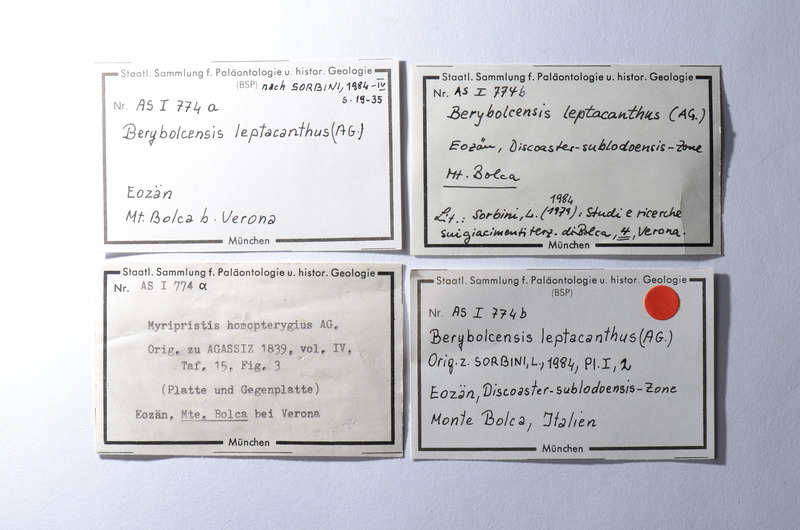 Staatl. Sammlung f. Paläontologie u. histor. Geologie
(BSP) nach SORBINI, 1984-IV
Nr. AS I 774 a
S. 19-35
Berybolcensis leptacanthus (AG.)
Eozän
Mt. Bolca b. Verona
München
Staatl. Sammlung f. Paläontologie u. histor. Geologie
Nr. AS I 774b
Berybolcensis leptacanthus (AG.)
Eozän, Discoaster-sublodoensis-Zone
Mt. Bolca
1984
Lt.: Sorbini, L. (1979): Studi e ricerche
sui giacimenti terz. di Bolca, 4, Verona.
München
Staatl. Sammlung f. Paläontologie u. histor. Geologie
Nr. AS I 774 a
Myripristis homopterygius AG.
Orig. zu AGASSIZ 1839, vol. IV,
Taf. 15, Fig. 3
(Platte und Gegenplatte)
Eozän, Mte. Bolca bei Verona
München
Staatl. Sammlung f. Paläontologie u. histor. Geologie
(BSP)
Nr. AS I 774b
Berybolcensis leptacanthus (AG.)
Orig. z. SORBINI, L., 1984, Pl. I, 2
Eozän, Discoaster-sublodoensis-Zone
Monte Bolca, Italien
München